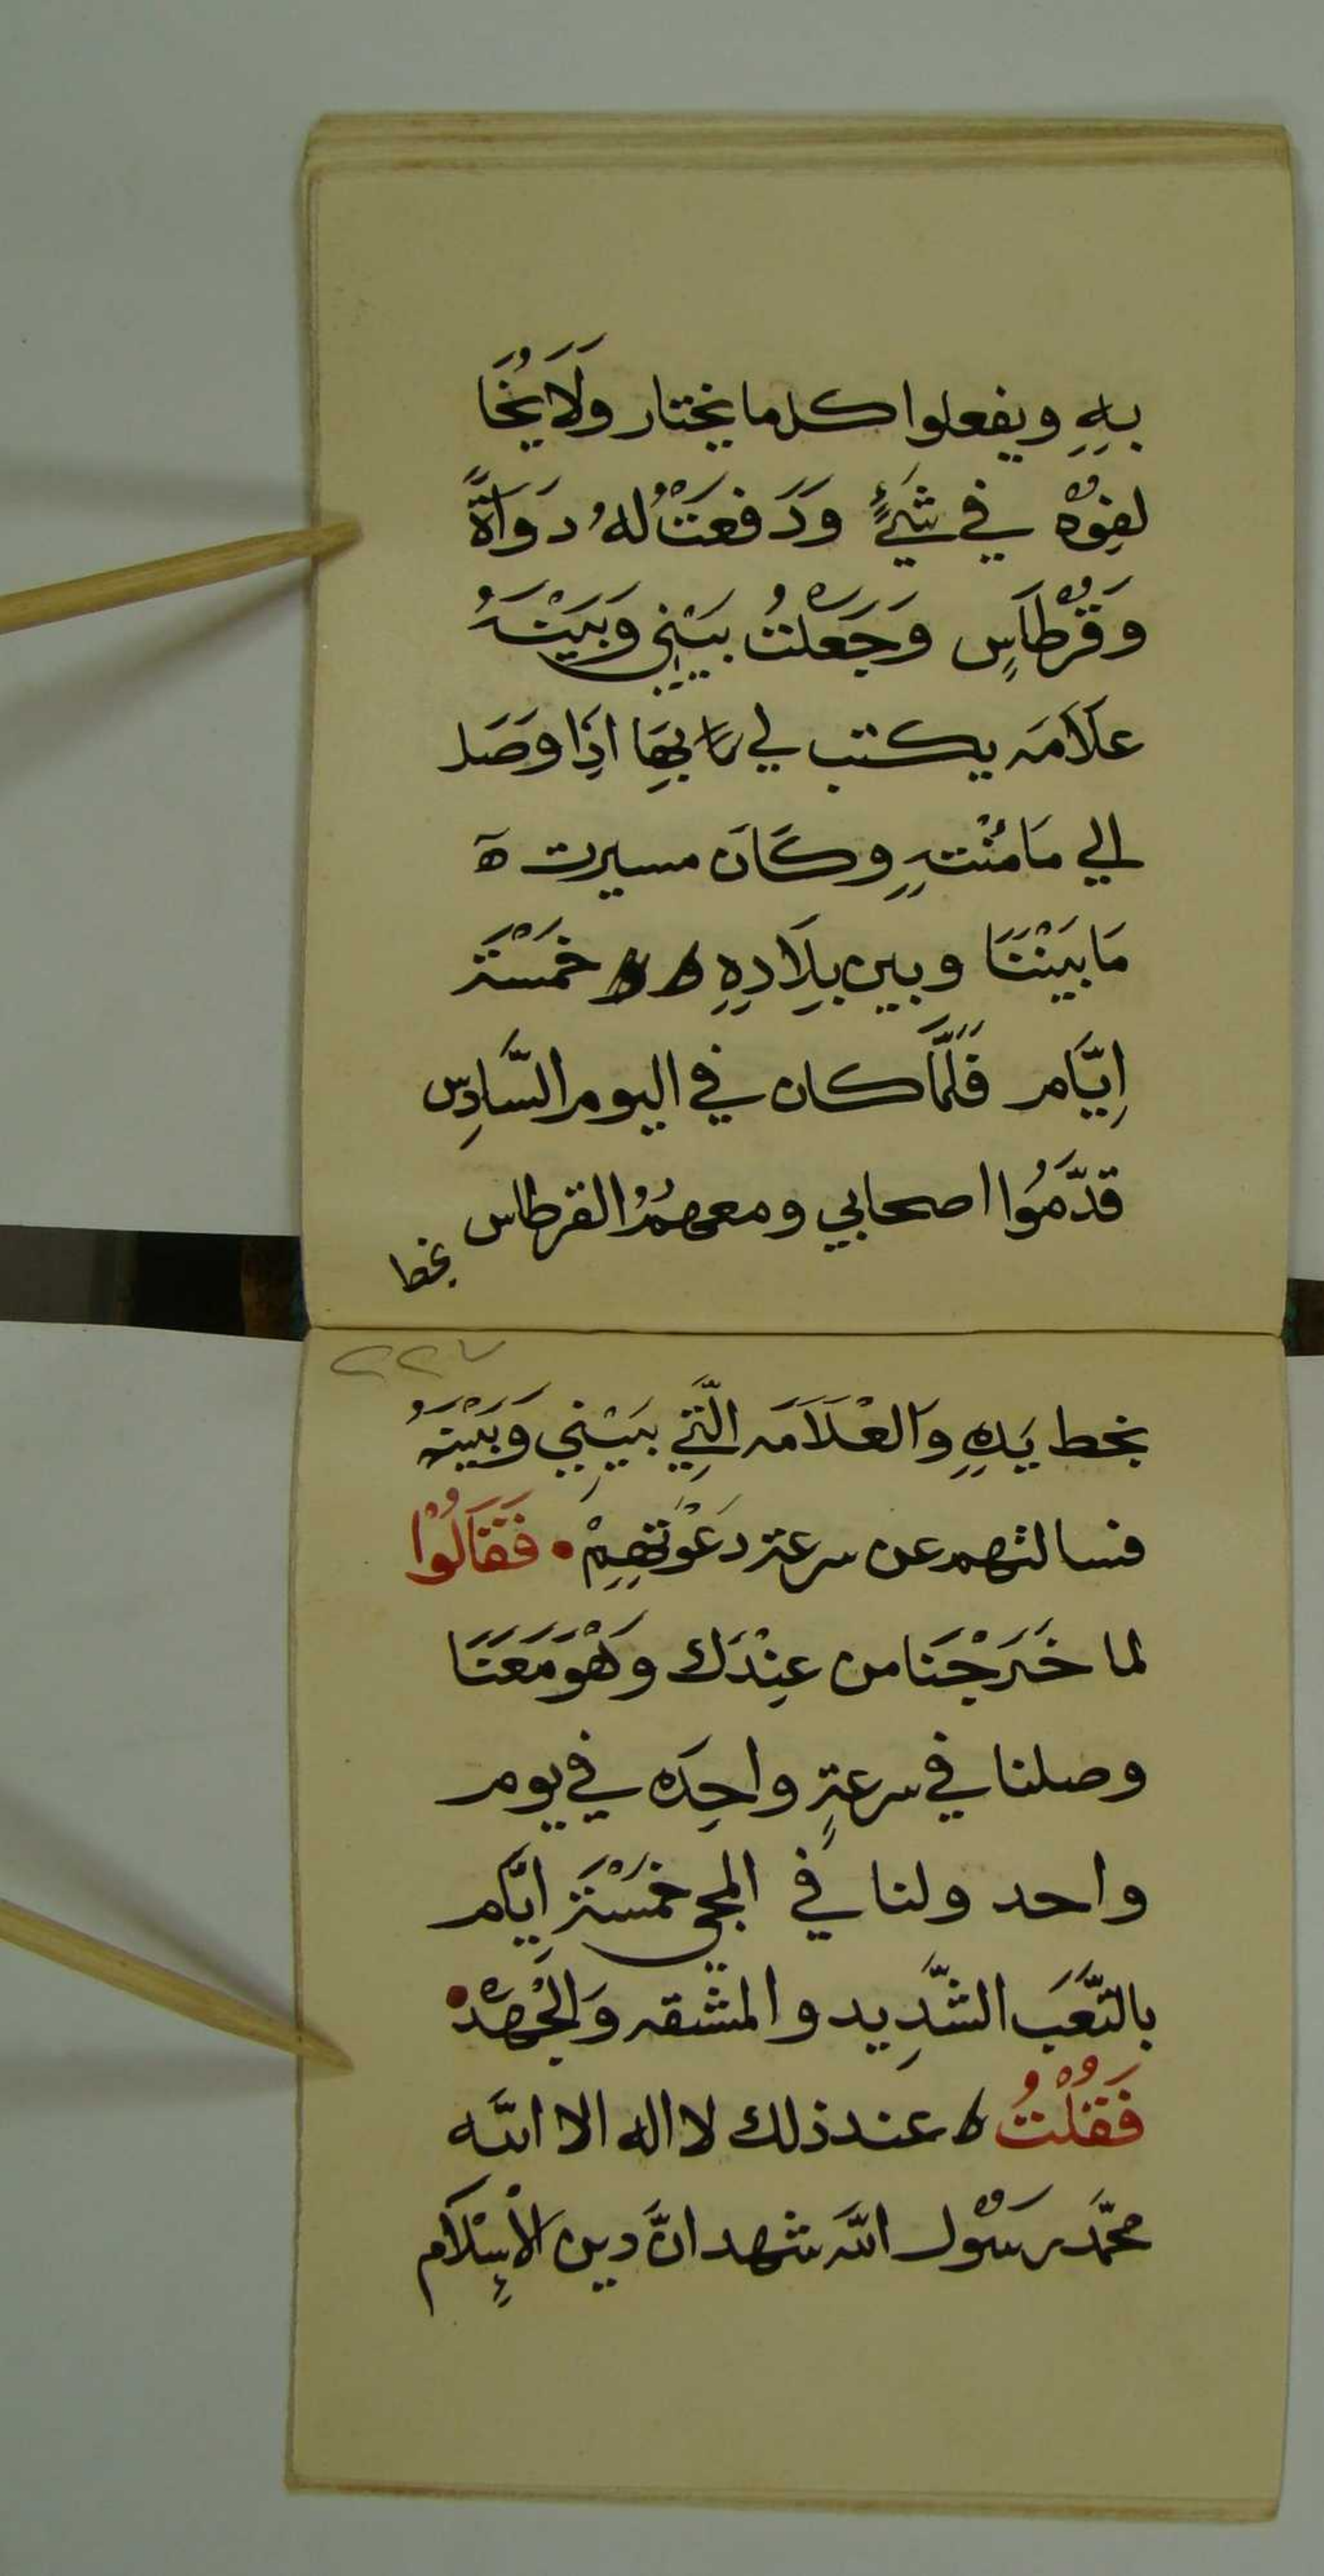 بِهِ ويفعلوا كلما يختار وَلَا يُخَا
لفِوهْ في شَيْءٍ وَدَفعَتْ لهُ دَوَاةً
وَقُرْطَاسٍ وَجَعَلْتُ بَيْنِي وَبَيْنَهُ
عَلَامَه يكتب لي بِهَا اذِا وَصَل
الي مَامَنْتهِ وكَانَ مسيرت ه
مَا بَيْنَنَا وبين بِلَادِهِ خَمْسَة
اِيَّام فَلَمَّا كان في اليوم السَّادِس
قدَّمُوا اصحابي ومعهمُ القرطاس
بخط
٢٢٧
بخط يَدِهِ وَالعْلَامَه الَّتِي بَيْنِي وَبَيْنهُ
فسالتهم عن سرعة دَعْوَتهِمْ • فَقَالُوْا
لما خَرَجْنَا من عِنْدَك وَهْوَ مَعَنَا
وصلنا في سرعةٍ واحِدَه في يوم
واحد ولنا في المجي خَمْسَة اِيَّام
بالتَّعَبَ الشَّدِيد والمشقه وَالجْهَدْ •
فَقُلْتُ عند ذلك لا اله الا الله
محمَّد رَسُوْل اللَّه شهد انَّ دين الْاِسْلَام